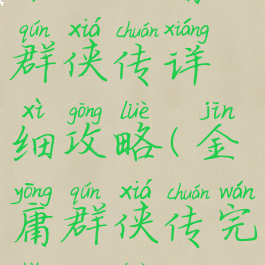 qún xiá chuán xiáng
群侠传详
xì gōng lüè jīn
细攻略(金
yōng qún xiá chuán wán
庸群侠传完